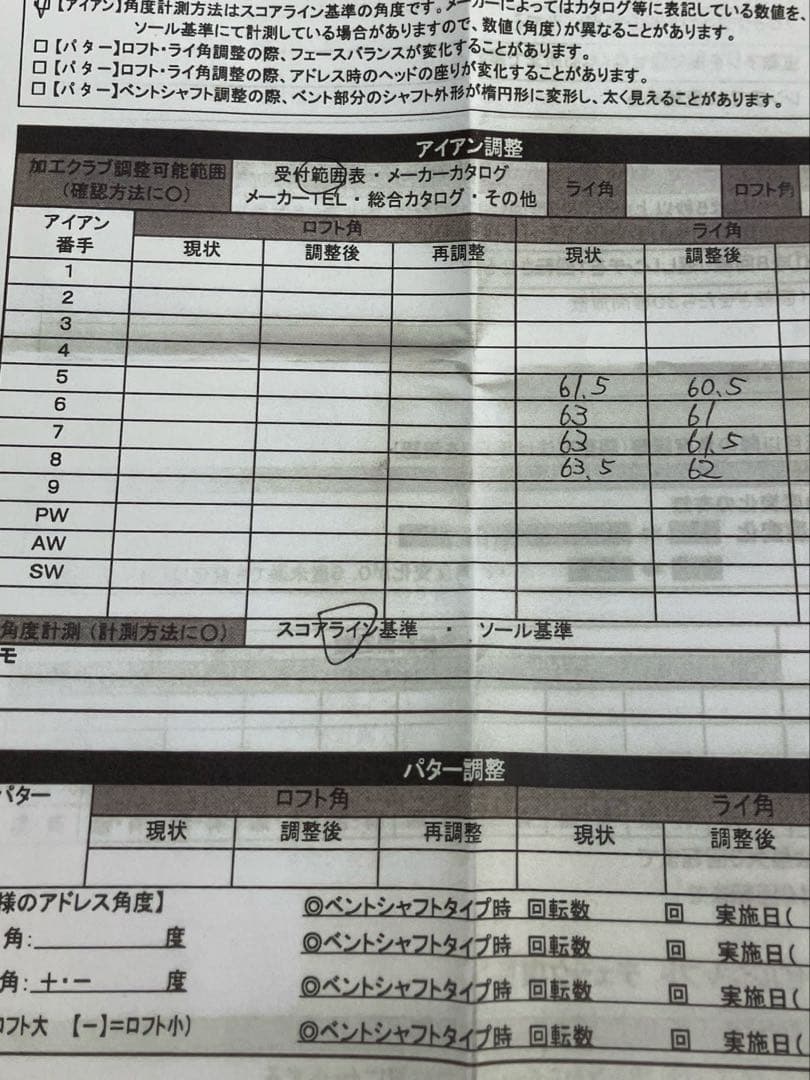 【アイアン】角度計測方法はスコアライン基準の角度です。メーカーによってはカタログ等に表記している数値を、
ソール基準にて計測している場合がありますので、数値(角度)が異なることがあります。
□【パター】ロフト・ライ角調整の際、フェースバランスが変化することがあります。
□【パター】ロフト・ライ角調整の際、アドレス時のヘッドの座りが変化することがあります。
□【パター】ベントシャフト調整の際、ベント部分のシャフト外形が楕円形に変形し、太く見えることがあります。
アイアン調整
加工クラブ調整可能範囲
(確認方法に○)
受付範囲表・メーカーカタログ
メーカーTEL・総合カタログ・その他
ライ角
ロフト角
アイアン
番手
ロフト角
ライ角
現状 調整後 再調整 現状 調整後
1
2
3
4
5 61.5 60.5
6 63 61
7 63 61.5
8 63.5 62
9
PW
AW
SW
角度計測(計測方法に○) スコアライン基準 ・ ソール基準
モ
パター調整
パター
ロフト角
ライ角
現状 調整後 再調整 現状 調整後
様のアドレス角度】 ◎ベントシャフトタイプ時 回転数 回 実施日(
角: 度 ◎ベントシャフトタイプ時 回転数 回 実施日(
角: +・− 度 ◎ベントシャフトタイプ時 回転数 回 実施日(
ロフト大 【−】=ロフト小) ◎ベントシャフトタイプ時 回転数 回 実施日(